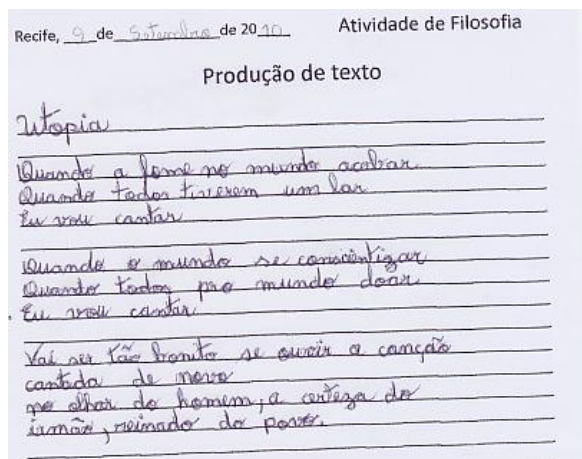 Recife, 9 de Setembro de 2010 Atividade de Filosofia
Produção de texto
Utopia
Quando a fome no mundo acabar
Quando todos tiverem um lar
Eu vou cantar
Quando o mundo se consciêntizar
Quando todos pro mundo doar
Eu vou cantar
Vai ser tão bonito se ouvir a canção
cantada de novo
no olhar do homem, a certeza do
irmão, reinado do povo.